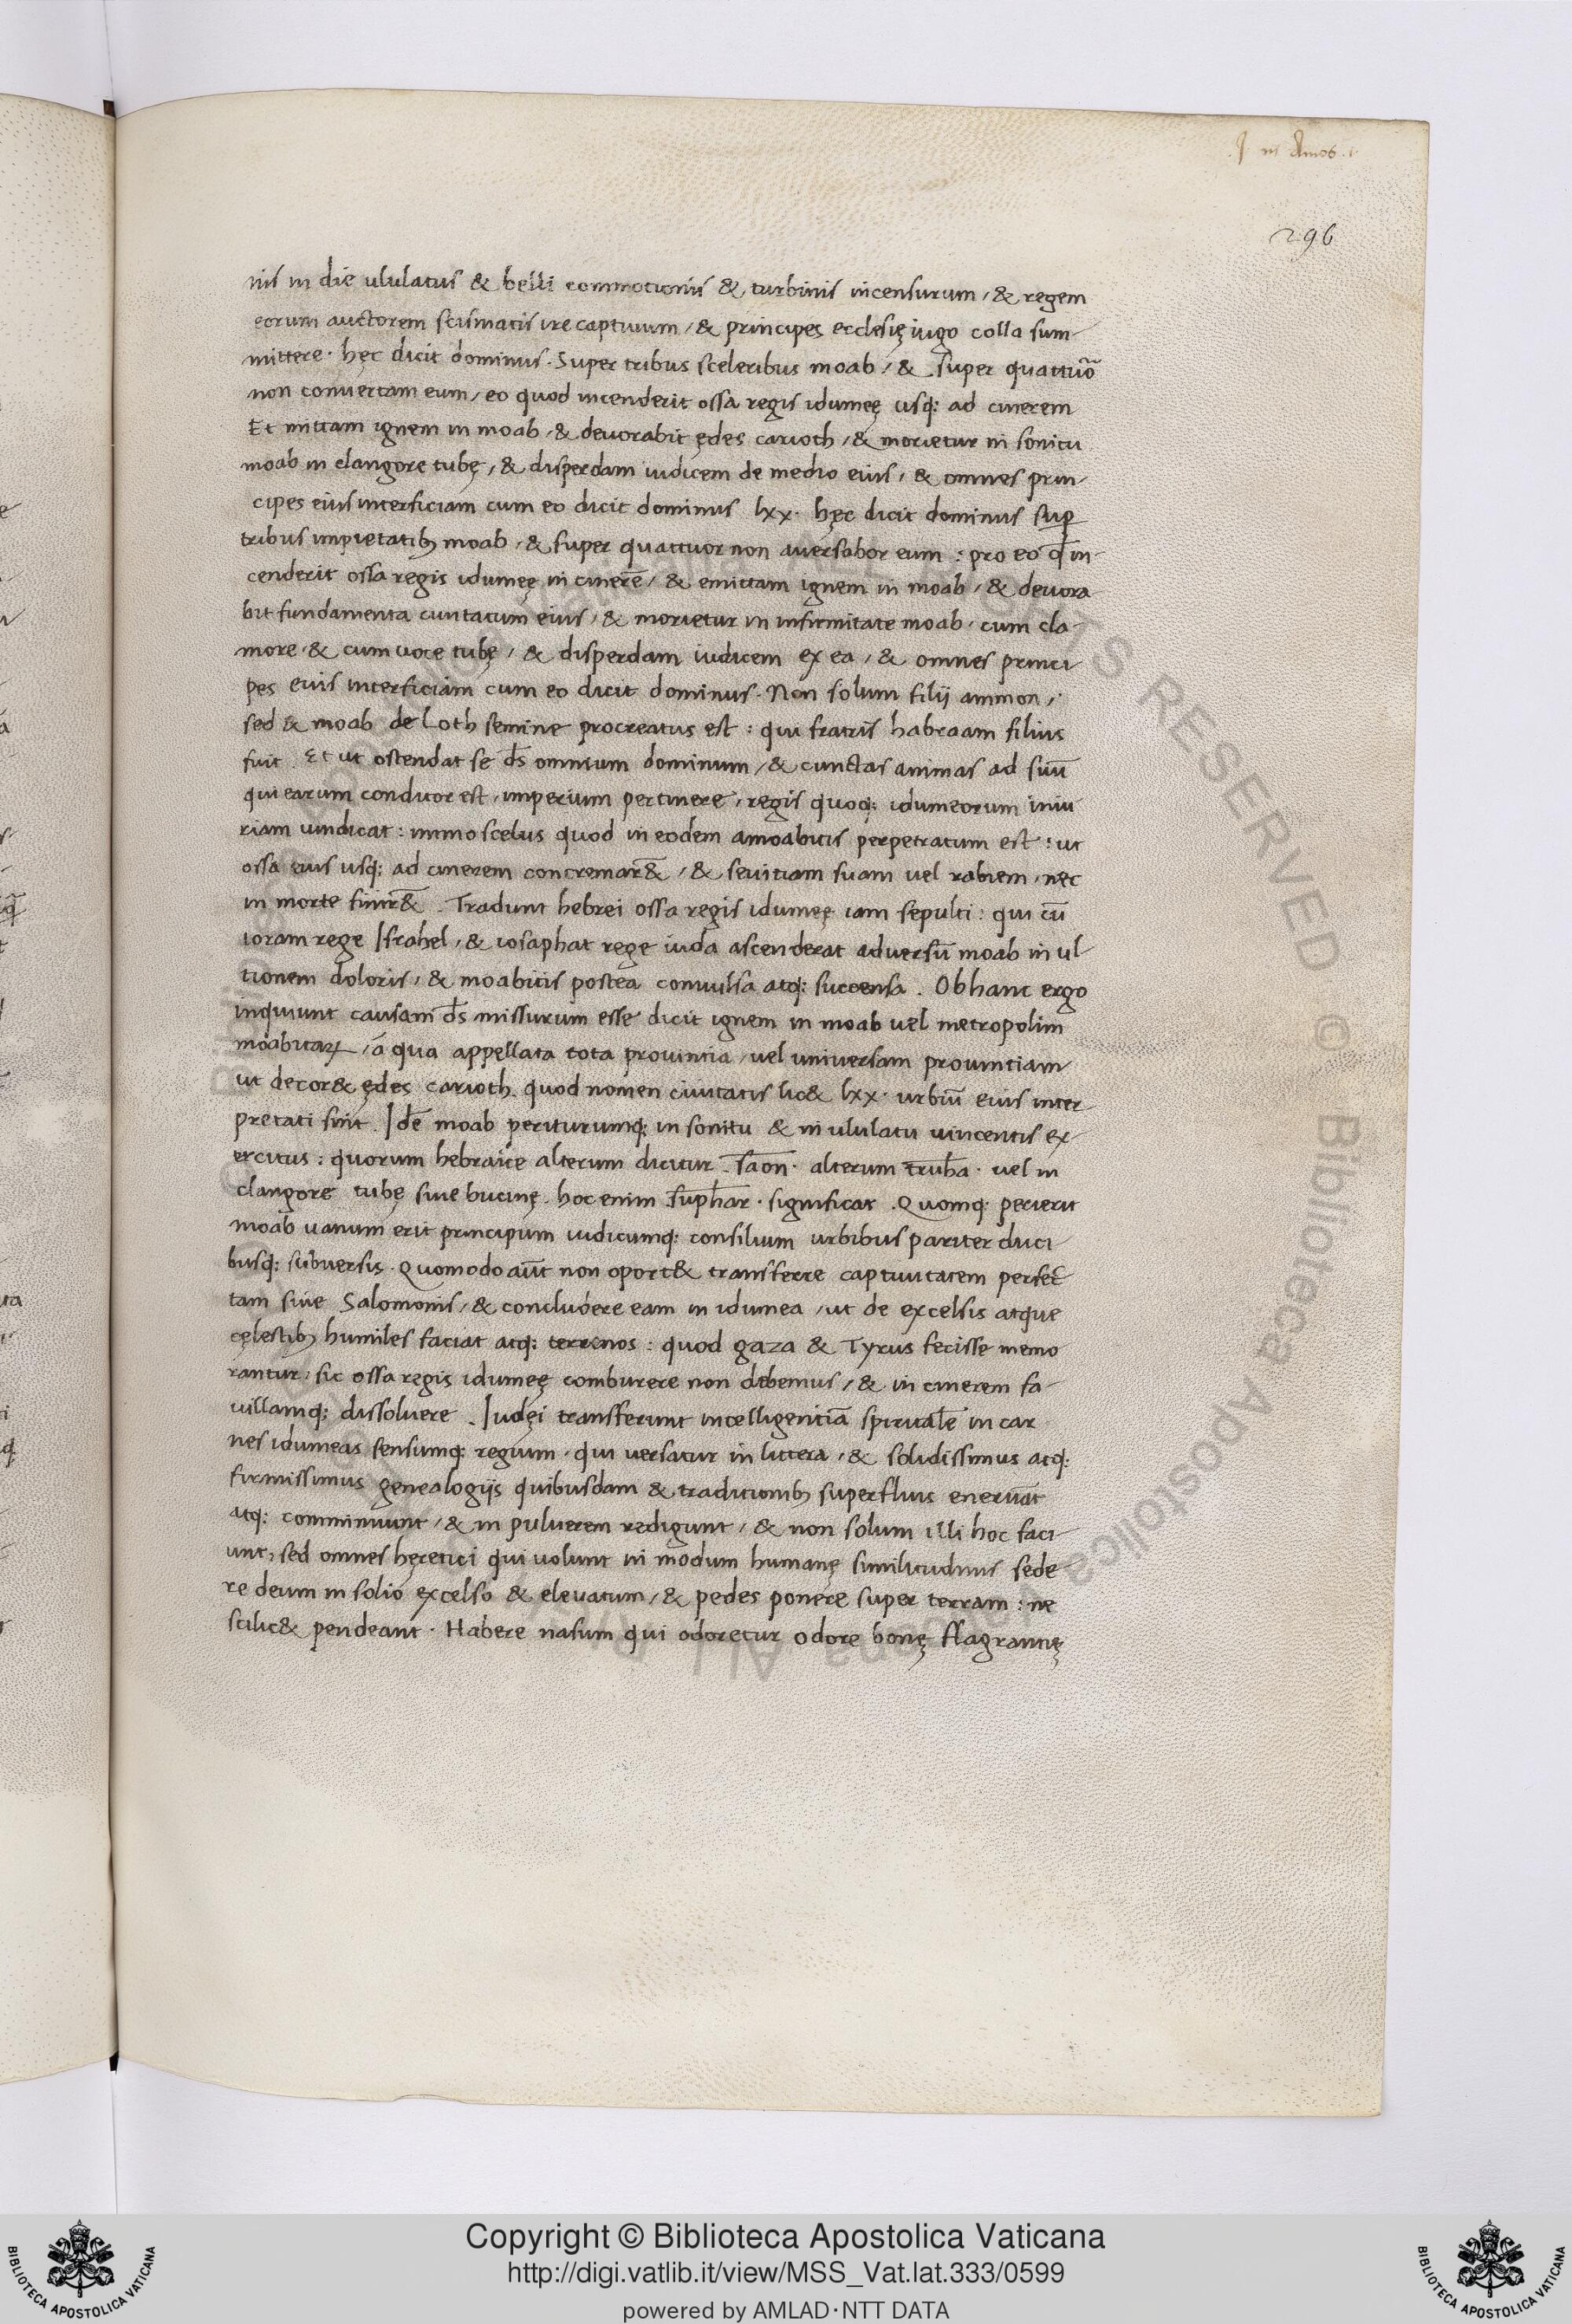 J in Amos .1.
296
nis in die ululatus & belli commotionis & turbinis incensurum, & regem
eorum auctorem scismatis ire captiuum, & principes ecclesię iugo colla sum-
mittere. hęc dicit dominus. Super tribus sceleribus moab, & super quattuor
non conuertam eum, eo quod incenderit ossa regis idumeę usq: ad cinerem
Et mittam ignem in moab, & deuorabit ędes carioth, & morietur in sonitu
moab in clangore tubę, & disperdam iudicem de medio eius, & omnes prin-
cipes eius interficiam cum eo dicit dominus lxx. hęc dicit dominus sup̄
tribus impietatib; moab, & super quattuor non auersabor eum: pro eo q̄ in-
cenderit ossa regis idumeę in cinerē, & emittam ignem in moab, & deuora
bit fundamenta ciuitatum eius, & morietur in infirmitate moab, cum cla-
more, & cum uoce tubę, & disperdam iudicem ex ea, & omnes princi-
pes eius interficiam cum eo dicit dominus. Non solum filij ammon,
sed & moab de Loth semine procreatus est: qui fratris habraam filius
fuit. Et ut ostendat se d̄s omnium dominum, & cunctas animas ad suū
qui earum conditor est, imperium pertinere, regis quoq: idumeorum iniu
riam uindicat: immo scelus quod in eodem amoabitis perpetratum est: ut
ossa eius usq: ad cinerem concremar&, & seuitiam suam uel rabiem, nec
in morte finir&. Tradunt hebrei ossa regis idumeę iam sepulti: qui cū
ioram rege Israhel, & iosaphat rege iuda ascenderat aduersū moab in ul-
tionem doloris, & moabitis postea conuulsa atq: succensa. Ob hanc ergo
inquiunt causam d̄s missurum esse dicit ignem in moab uel metropolim
moabitaꝝ, a qua appellata tota prouintia, uel uniuersam prouintiam
ut decor& ędes carioth. quod nomen ciuitatis lic& lxx. urbiū eius inter
pretati sint. Idē moab periturumq: in sonitu & in ululatu uincentis ex-
ercitus: quorum hebraice alterum dicitur. saon. alterum truha. uel in
clangore tubę siue bucinę. hoc enim suphar. significat. Quomq: perierit
moab uanum erit principum iudicumq: consilium urbibus pariter duci
busq: subuersis. Quomodo aūt non oport& transferre captiuitatem perfec
tam siue Salomonis, & concludere eam in idumea, ut de excelsis atque
cęlestib; humiles faciat atq: terrenos: quod gaza & Tyrus fecisse memo
rantur, sic ossa regis idumeę comburere non debemus, & in cinerem fa-
uillamq: dissoluere. Iudęi transferunt intelligentiā spiritualē in car
nes idumeas sensumq: regium. qui uersatur in littera, & solidissimus atq:
firmissimus genealogijs quibusdam & traditionib; superfluis eneruāt
atq: comminuunt, & in puluerem redigunt, & non solum illi hoc faci-
unt, sed omnes hęretici qui uolunt in modum humanę similitudinis sede
re deum in solio excelso & eleuatum, & pedes ponere super terram: ne
scilic& pendeant. Habere nasum qui odoretur odore bonę flagrantię
Copyright © Biblioteca Apostolica Vaticana
http://digi.vatlib.it/view/MSS_Vat.lat.333/0599
powered by AMLAD·NTT DATA
BIBLIOTECA APOSTOLICA VATICANA
BIBLIOTECA APOSTOLICA VATICANA